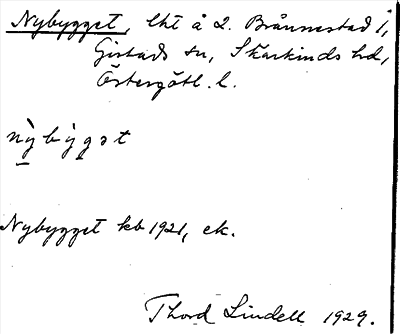 Nybygget, lht å 2. Brånnestad 1,
Gistads sn, Skärkinds hd,
Östergötl. l.
nỳbỳgət
Nybygget kb 1921, ek.
Thord Lindell 1929.